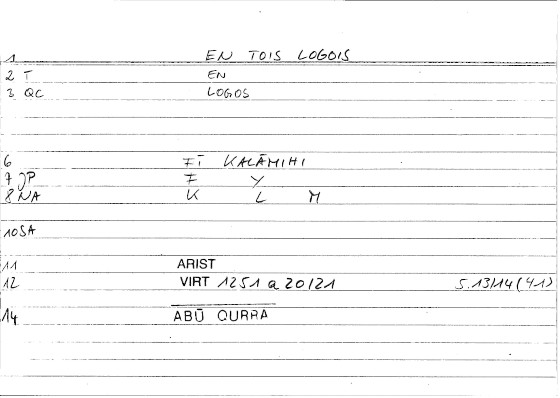 1 EN TOIS LOGOIS
2 T EN
3 QC LOGOS
6 FĪ KALĀMIHI
7 JP F Y
8 NA K L M
10 SA
11 ARIST
12 VIRT 1251 a 20/21 5.13/14 (41)
14 ABŪ QURRA